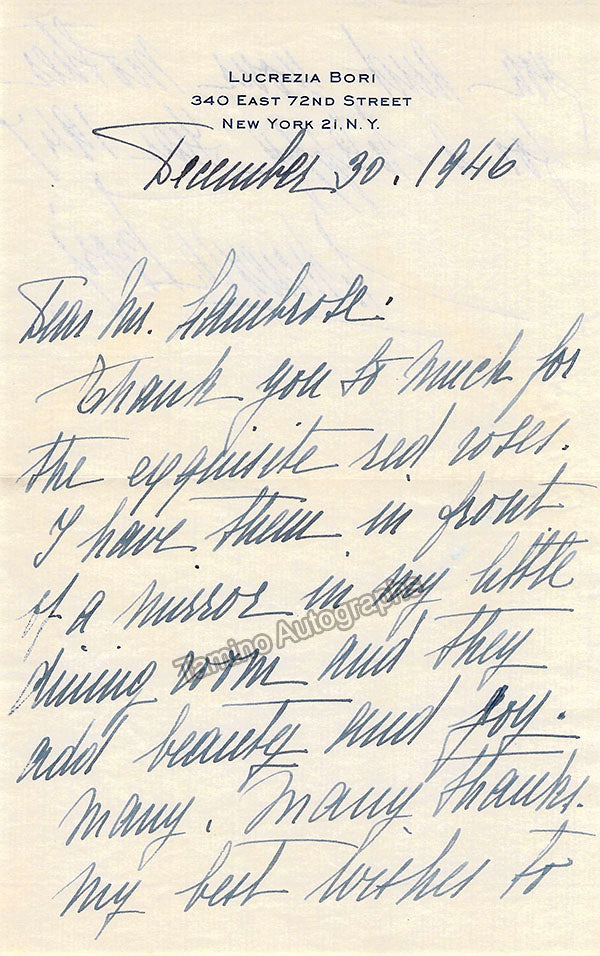 LUCREZIA BORI
340 EAST 72ND STREET
NEW YORK 21, N.Y.
December 30. 1946
Dear Mr. Lambrose:
Thank you so much for
the exquisite red roses.
I have them in front
of a mirror in my little
dining room and they
add beauty and joy.
Many. Many thanks.
My best wishes to
Tamino Autographs